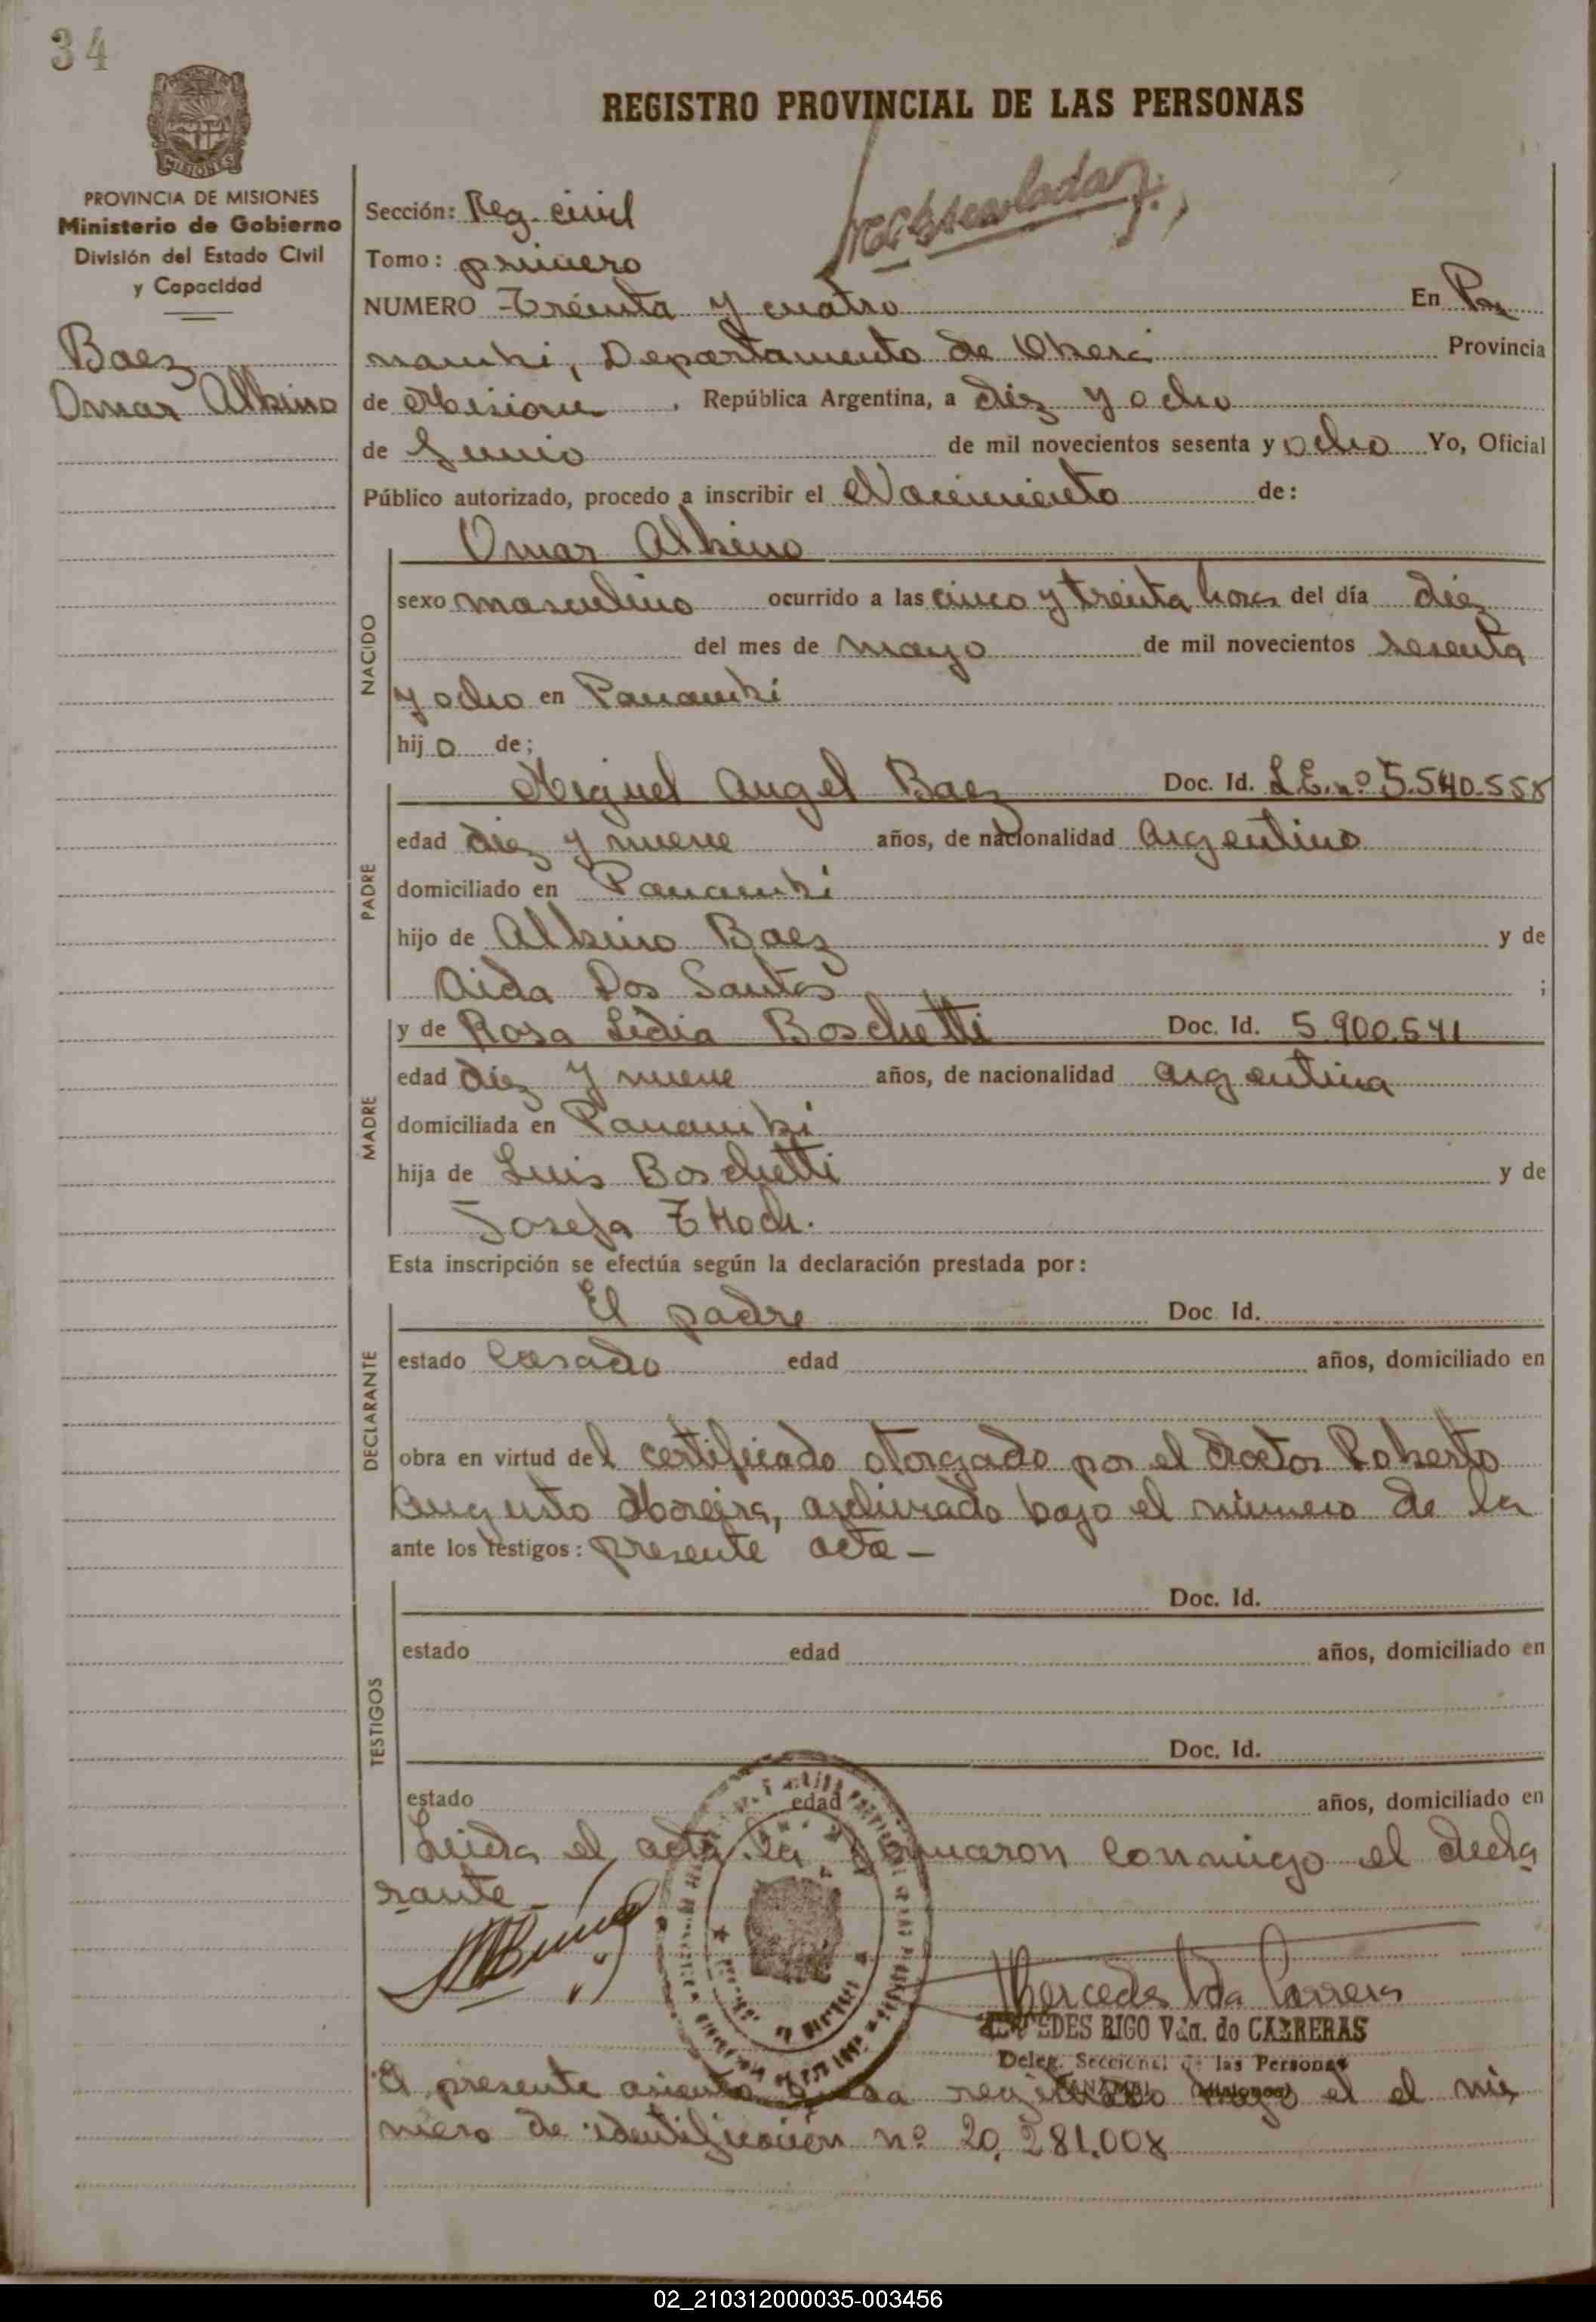 34
REGISTRO PROVINCIAL DE LAS PERSONAS
MISIONES
PROVINCIA DE MISIONES
Ministerio de Gobierno
División del Estado Civil
y Capacidad
Baez
Omar Albino
Sección: Reg. civil
Tomo: primero
NUMERO Treinta y cuatro En Pa
nambi, Departamento de Oberá Provincia
de Misiones, República Argentina, a diez y ocho
de Junio de mil novecientos sesenta y ocho Yo, Oficial
Público autorizado, procedo a inscribir el Nacimiento de:
Omar Albino
NACIDO
sexo masculino ocurrido a las cinco y treinta horas del día diez
del mes de mayo de mil novecientos sesenta
y ocho en Panambi
hijo de;
PADRE
Miguel Angel Baez Doc. Id. L.E. nº 5.540.558
edad diez y nueve años, de nacionalidad Argentino
domiciliado en Panambi
hijo de Albino Baez y de
Aida Dos Santos ;
MADRE
y de Rosa Lidia Boschetti Doc. Id. 5.900.541
edad diez y nueve años, de nacionalidad argentina
domiciliada en Panambi
hija de Luis Boschetti y de
Josefa
Esta inscripción se efectúa según la declaración prestada por:
DECLARANTE
El padre Doc. Id.
estado Casado edad años, domiciliado en
obra en virtud del certificado otorgado por el doctor Roberto
Augusto Moreira, archivado bajo el número de la
ante los testigos: presente acta -
TESTIGOS
Doc. Id.
estado edad años, domiciliado en
Doc. Id.
estado edad años, domiciliado en
Leida el acta la firmaron conmigo el decla
rante -
Mercedes Vda Carreras
MERCEDES RIGO Vda. de CARRERAS
Deleg. Seccional de las Personas
PANAMBI (Misiones)
El presente asiento queda registrado bajo el el nú
mero de identificación nº 20.281.008
02_210312000035-003456